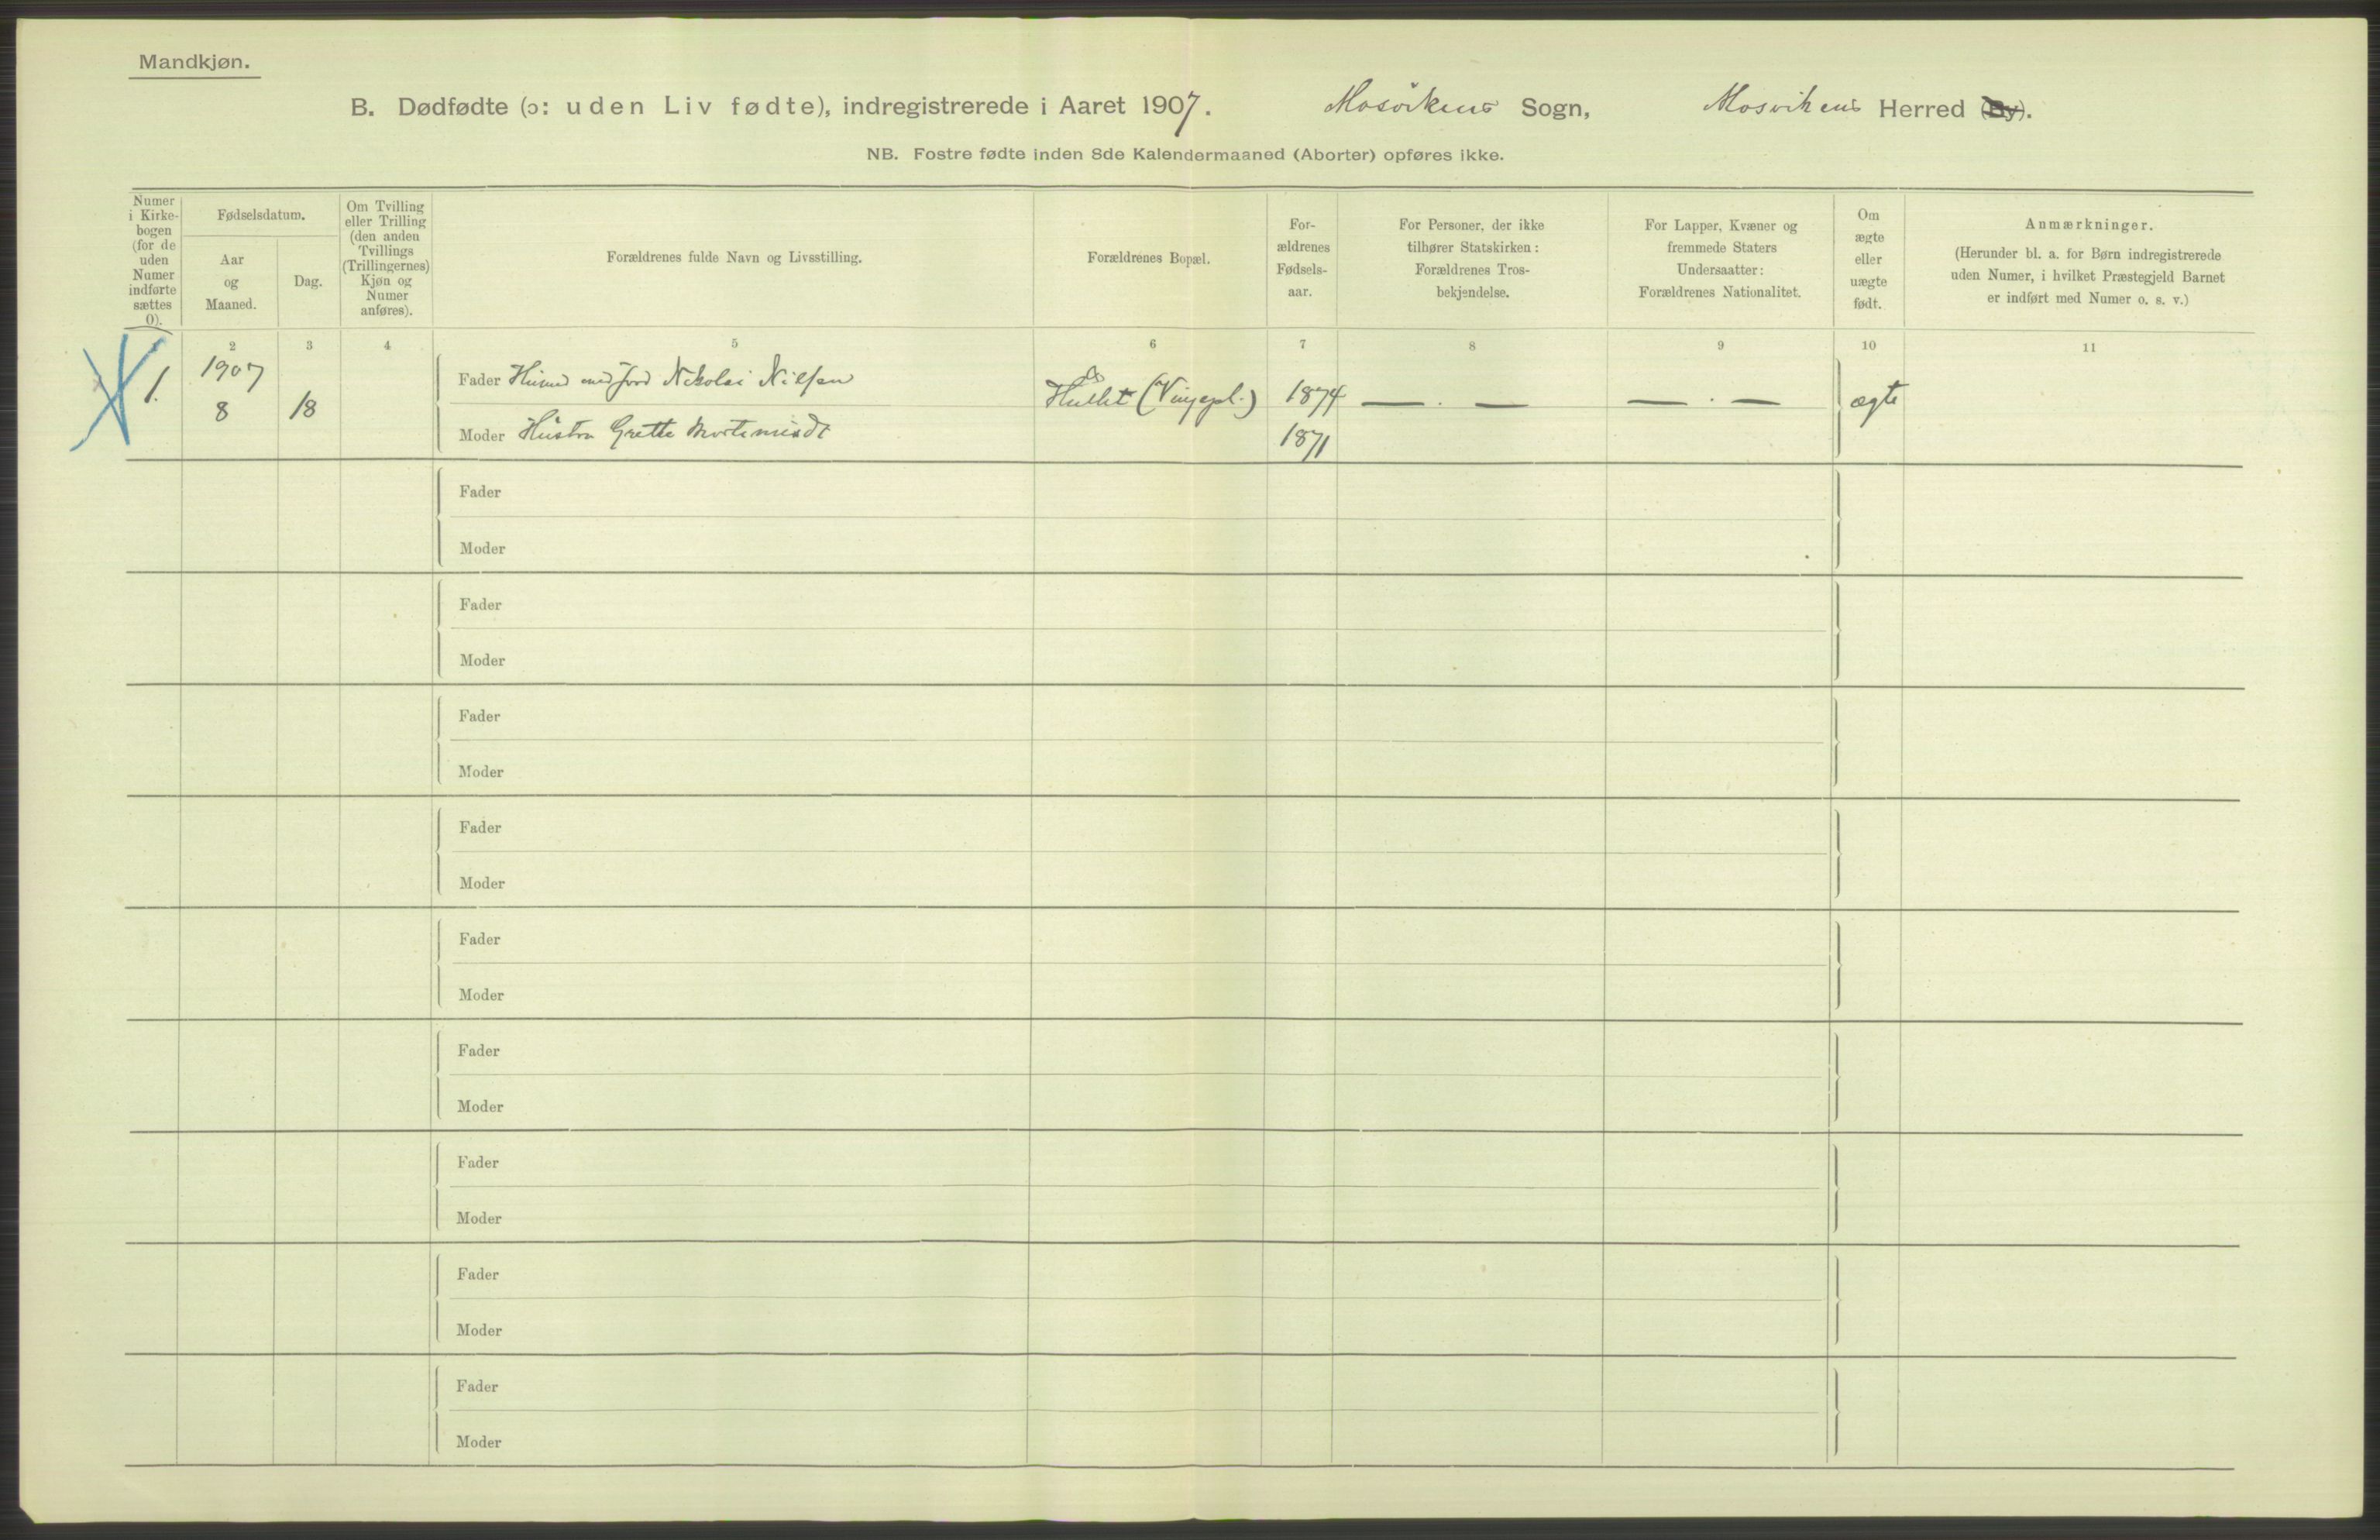 Mandkjøn.
B. Dødfødte (ɔ: uden Liv fødte), indregistrerede i Aaret 1907. Mosvikens Sogn, Mosvikens Herred (By).
NB. Fostre fødte inden 8de Kalendermaaned (Aborter) opføres ikke.
Numer
i Kirke-
bogen
(for de
uden
Numer
indførte
sættes
0).
Fødselsdatum.
Aar
og
Maaned.
Dag.
Om Tvilling
eller Trilling
(den anden
Tvillings
(Trillingernes)
Kjøn og
Numer
anføres).
Forældrenes fulde Navn og Livsstilling.
Forældrenes Bopæl.
For-
ældrenes
Fødsels-
aar.
For Personer, der ikke
tilhører Statskirken:
Forældrenes Tros-
bekjendelse.
For Lapper, Kvæner og
fremmede Staters
Undersaatter:
Forældrenes Nationalitet.
Om
ægte
eller
uægte
født.
Anmærkninger.
(Herunder bl. a. for Børn indregistrerede
uden Numer, i hvilket Præstegjeld Barnet
er indført med Numer o. s. v.)
2 3 4 5 6 7 8 9 10 11
1.
1907
8
18
Fader Husmd med Jord Nikolai Nilsen
Moder Hustru Grethe
Hullet
1874
1871
— . —
— . —
ægte
Fader
Moder
Fader
Moder
Fader
Moder
Fader
Moder
Fader
Moder
Fader
Moder
Fader
Moder
Fader
Moder
Fader
Moder